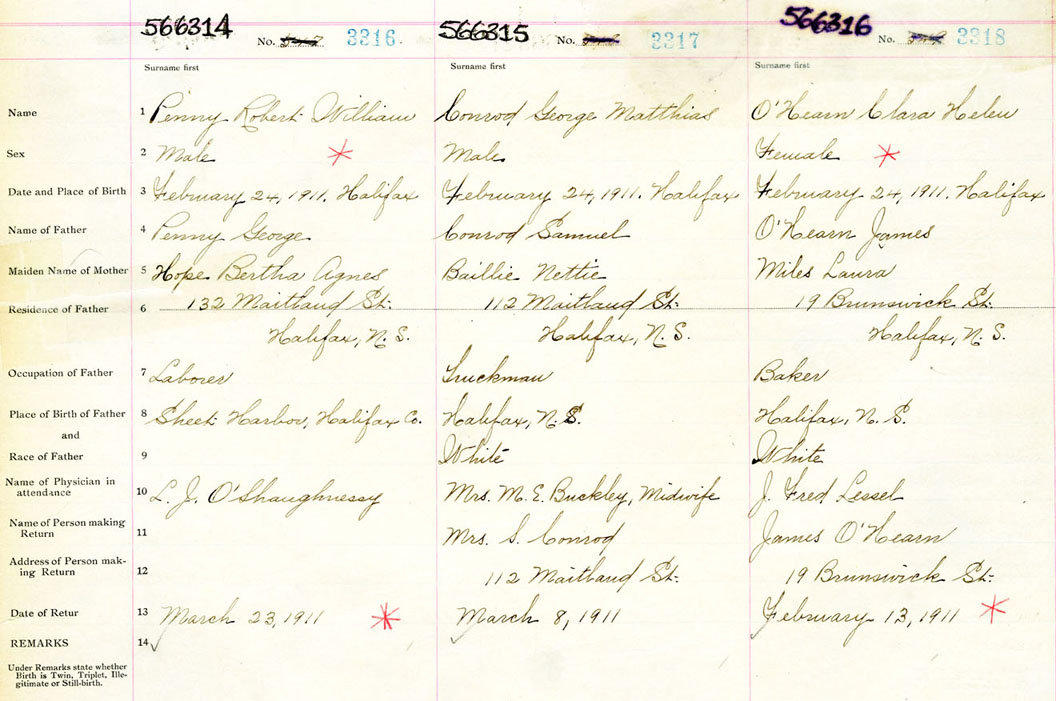 566314 No. 3316.
566315 No. 3317
566316 No. 3318
Surname first Surname first Surname first
Name 1 Penny Robert William Conrod George Matthias O'Hearn Clara Helen
Sex 2 Male Male Female
Date and Place of Birth 3 February 24, 1911. Halifax February 24, 1911. Halifax February 24, 1911. Halifax
Name of Father 4 Penny George Conrod Samuel O'Hearn James
Maiden Name of Mother 5 Hope Bertha Agnes Baillie Nettie Miles Laura
Residence of Father 6 132 Maitland St. 112 Maitland St. 19 Brunswick St.
Halifax, N.S. Halifax, N.S. Halifax, N.S.
Occupation of Father 7 Laborer Truckman Baker
Place of Birth of Father 8 Sheet Harbor, Halifax Co. Halifax, N.S. Halifax, N.S.
and
Race of Father 9 White White
Name of Physician in
attendance 10 L. J. O'Shaughnessy Mrs. M. E. Buckley, Midwife J. Fred Lessel
Name of Person making
Return 11 Mrs. S. Conrod James O'Hearn
Address of Person mak-
ing Return 12 112 Maitland St. 19 Brunswick St.
Date of Retur 13 March 23, 1911 March 8, 1911 February 13, 1911
REMARKS 14
Under Remarks state whether
Birth is Twin, Triplet, Ille-
gitimate or Still-birth.